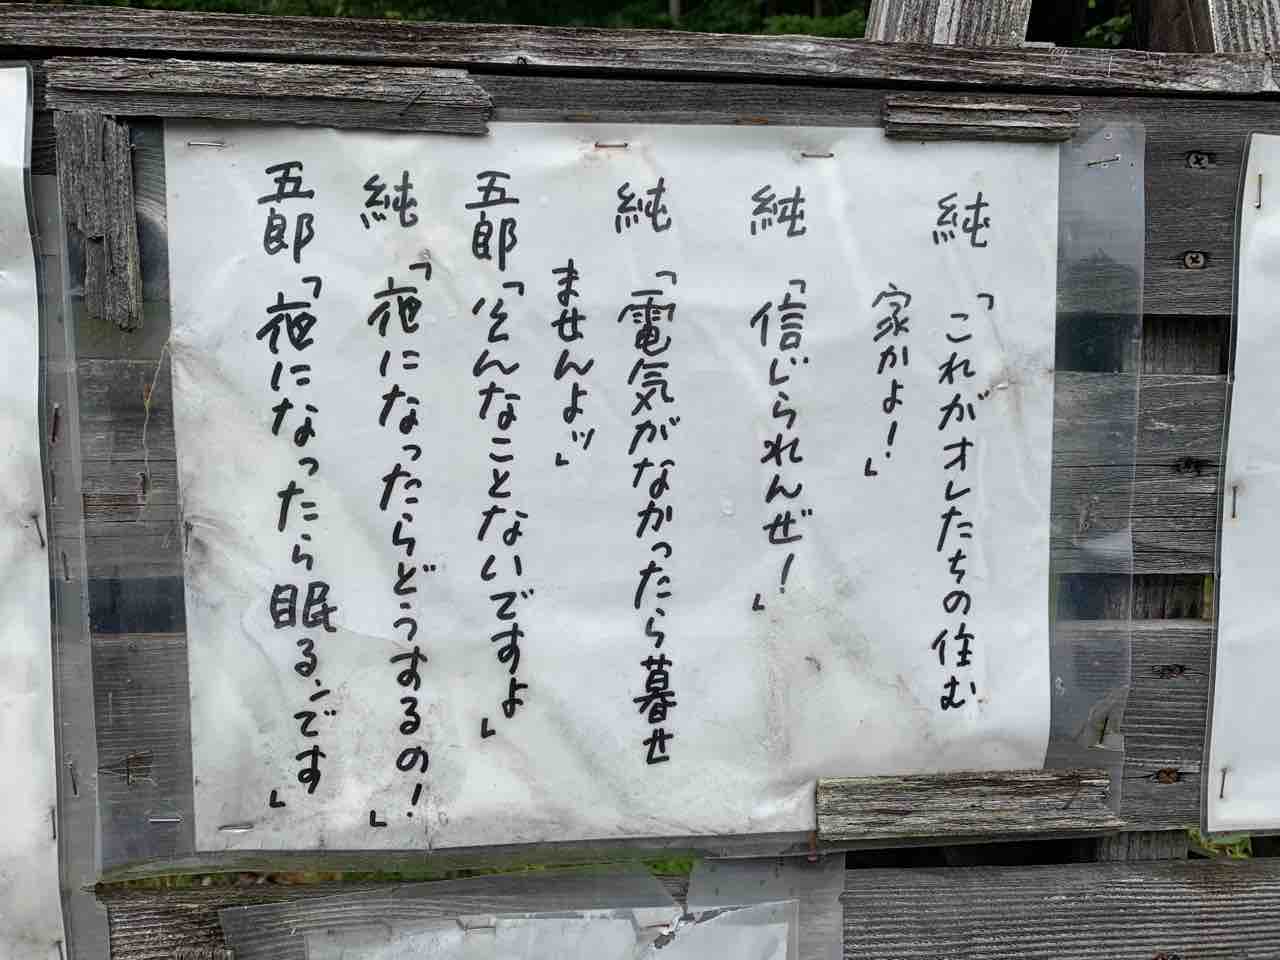 純
「これがオレたちの住む
家かよ！」
純
「信じられんぜ！」
純
「電気がなかったら暮せ
ませんよッ」
五郎「そんなことないですよ」
純「夜になったらどうするの！」
五郎「夜になったら眠るンです」